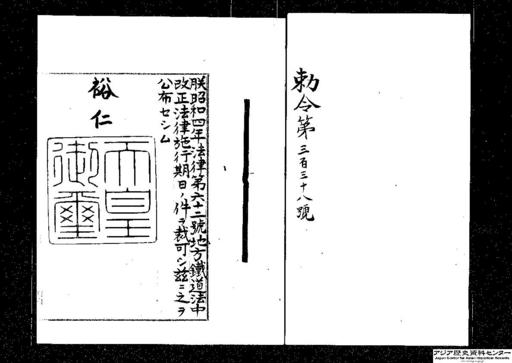 勅令第三百三十八號
朕昭和四年法律第六十二號地方鐵道法中
改正法律施行期日ノ件ヲ裁可シ茲ニ之ヲ
公布セシム
裕仁
天皇
御璽
アジア歴史資料センター
Japan Center for Asian Historical Records